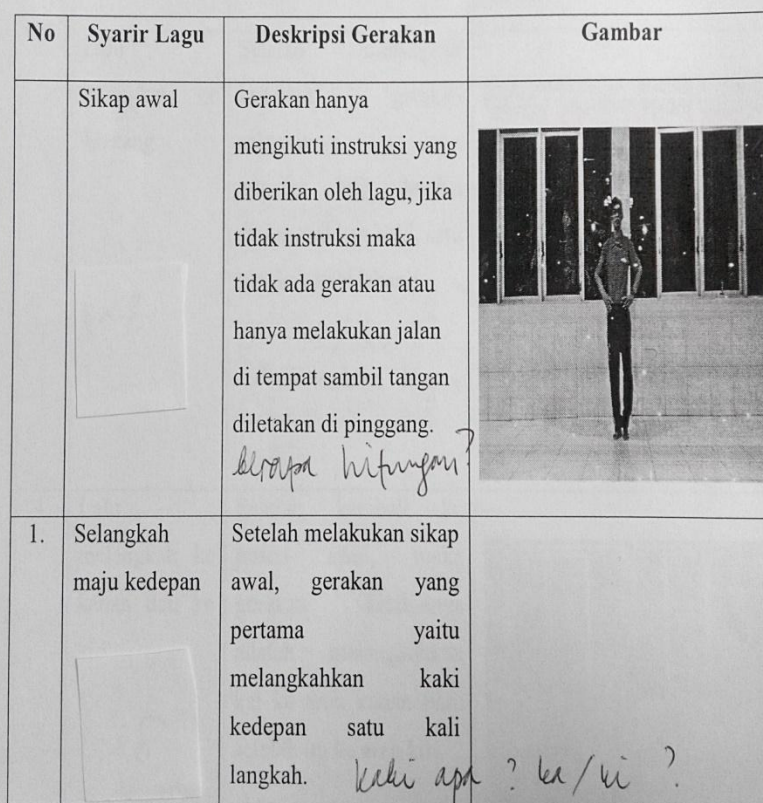 No Syarir Lagu Deskripsi Gerakan Gambar
Sikap awal
Gerakan hanya
mengikuti instruksi yang
diberikan oleh lagu, jika
tidak instruksi maka
tidak ada gerakan atau
hanya melakukan jalan
di tempat sambil tangan
diletakan di pinggang.
berapa hitungan?
1.
Selangkah
maju kedepan
Setelah melakukan sikap
awal, gerakan yang
pertama yaitu
melangkahkan kaki
kedepan satu kali
langkah.
kaki apa ? ka/ki ?